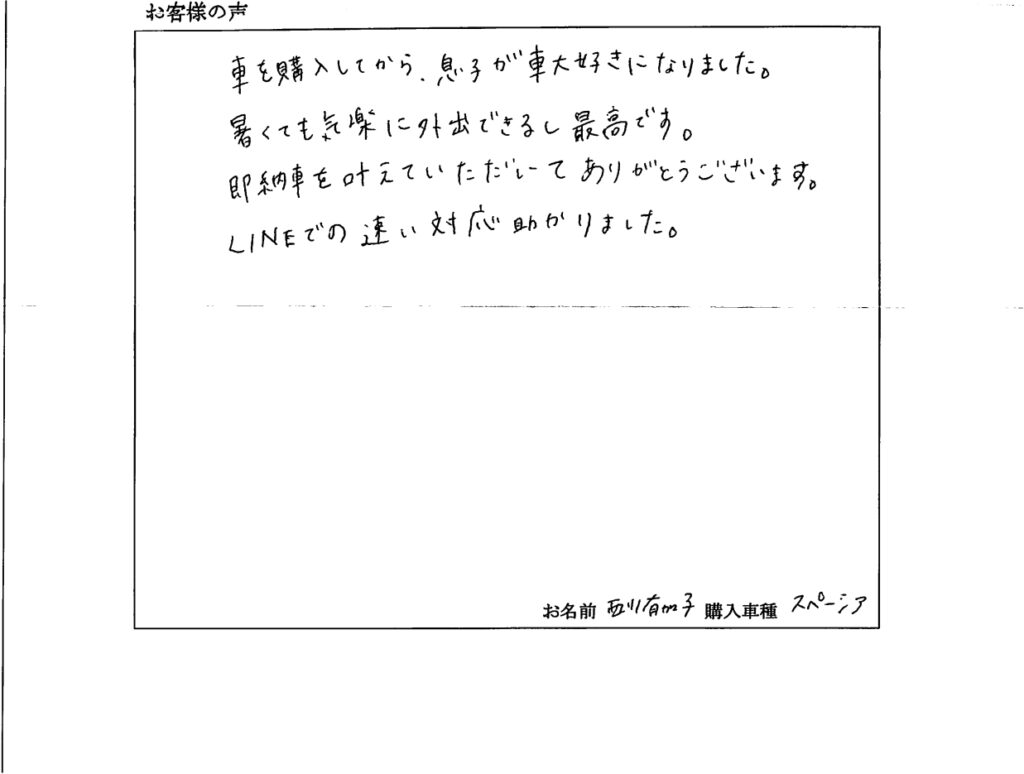 お客様の声
車を購入してから、息子が車大好きになりました。
暑くても気楽に外出できるし最高です。
即納車を叶えていただいてありがとうございます。
LINEでの速い対応助かりました。
お名前 西川有加子 購入車種 スペーシア